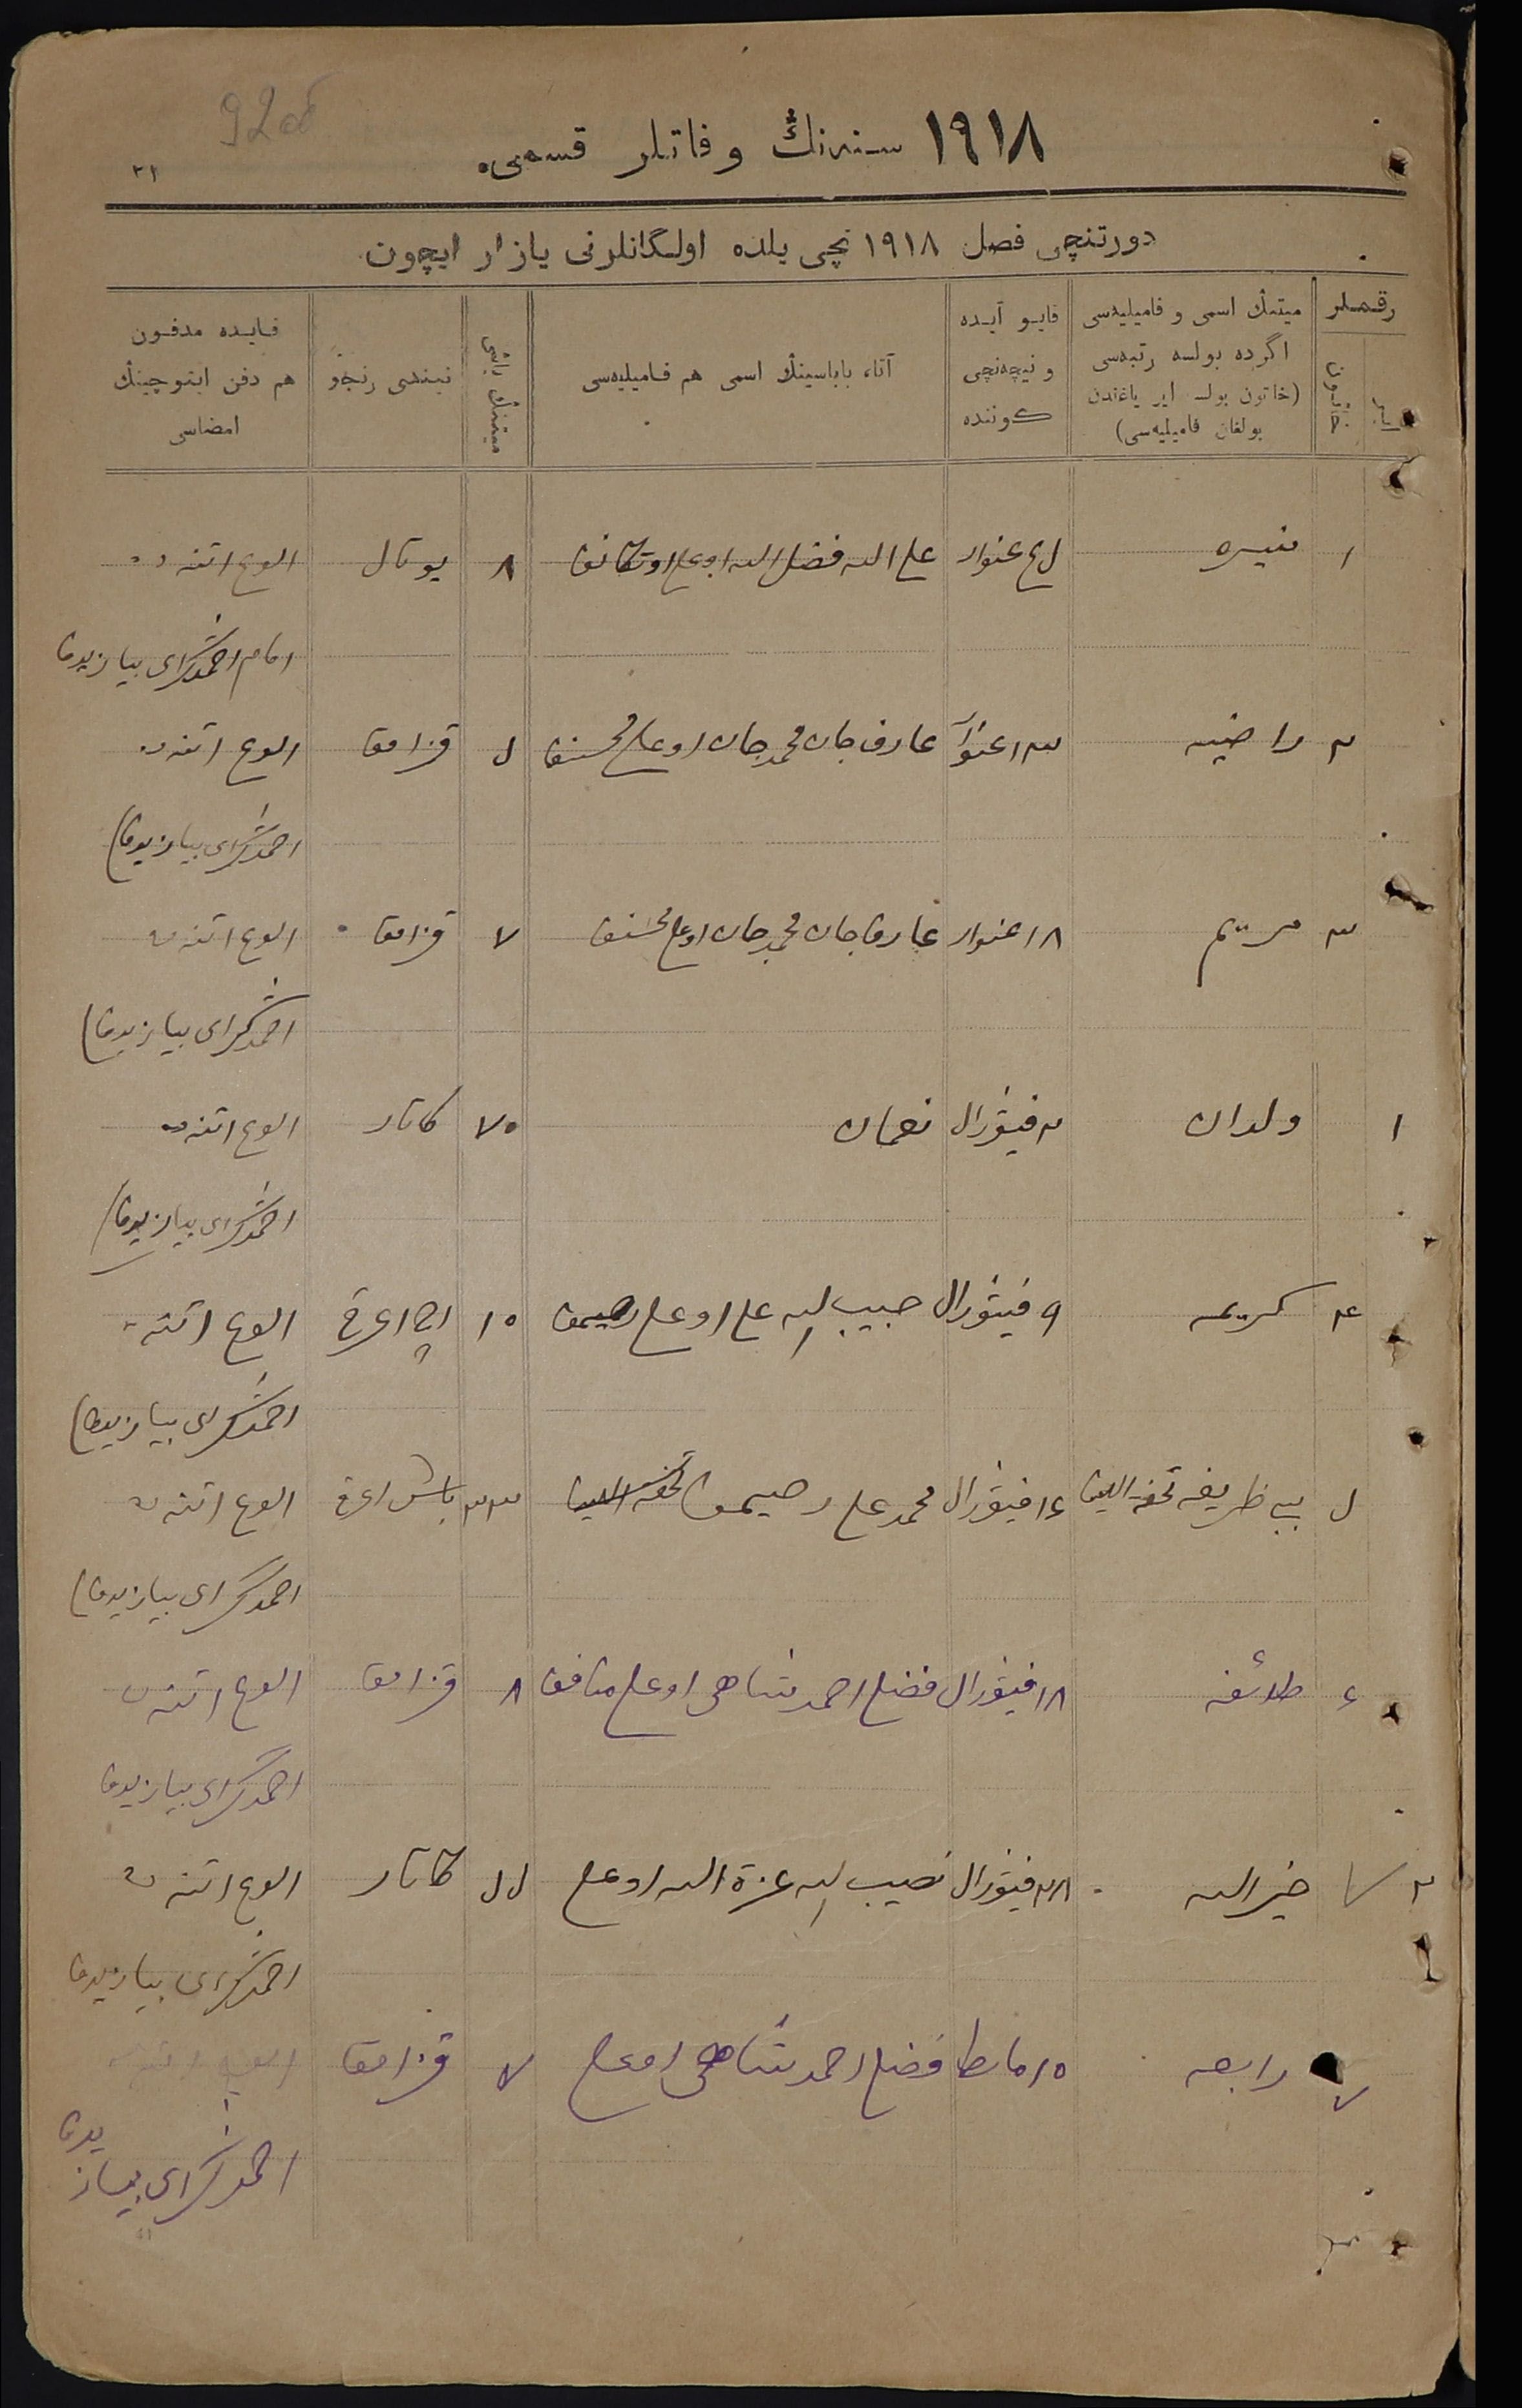 92об
١٩١٨ سنه‌نڭ وفاتلر قسمی.
٣١
دورتنچی فصل ١٩١٨ نچی یلده اولگانلرنی یازار ایچون
رقملر
میتنڭ اسمی و فامیلیه‌سی اگرده بولسه رتبه‌سی (خاتون بولسه ایر یاغندن بولغان فامیلیه‌سی)
قایو آیده و نیچه‌نچی کوننده
آتا، باباسینڭ اسمی هم فامیلیه‌سی
میتنڭ یاشی
نیندی رنجو
قایده مدفون هم دفن ایتوچینڭ امضاسی
١ منیره غنوار علی الله فضل الله اوغلی ٨ یوتال الوغ اتنه ده
امام احمدگرای بیازیدف
٢ راضیه ١٣ غنوار عارف جان محمد جان اوغلی محسنف ل قزامق الوغ اتنه ده
احمدگرای بیازیدف
٣ مریم ١٨ غنوار عارف جان محمد جان اوغلی محسنف ٧ قزامق الوغ اتنه ده
احمدگرای بیازیدف
١ ولدان ٢ فیۋرال نعمان ٧٥ کاتار الوغ اتنه ده
احمدگرای بیازیدف
٤ کریمه ٩ فیۋرال حبیب الله علی اوغلی رحیمف ١٥ اچ اغرق الوغ اتنه ده
احمدگرای بیازیدف
ل بی بی ظریفه تحفة اللین ١٤ فیۋرال محمد علی رحیمف ٣٣ باش اغرق الوغ اتنه ده
احمدگرای بیازیدف
٤ طائفه ١٨ فیۋرال فضل احمد شاهی اوغلی منافف ٨ قزامق الوغ اتنه ده
احمدگرای بیازیدف
٢ خیرالله ٢٨ فیۋرال نصیب الله عزة الله اوغلی لل کاتار الوغ اتنه ده
احمدگرای بیازیدف
٧ رابعه ١٥ مارط فضل احمد شاهی اوغلی ٧ قزامق الوغ اتنه ده
احمدگرای بیازیدف